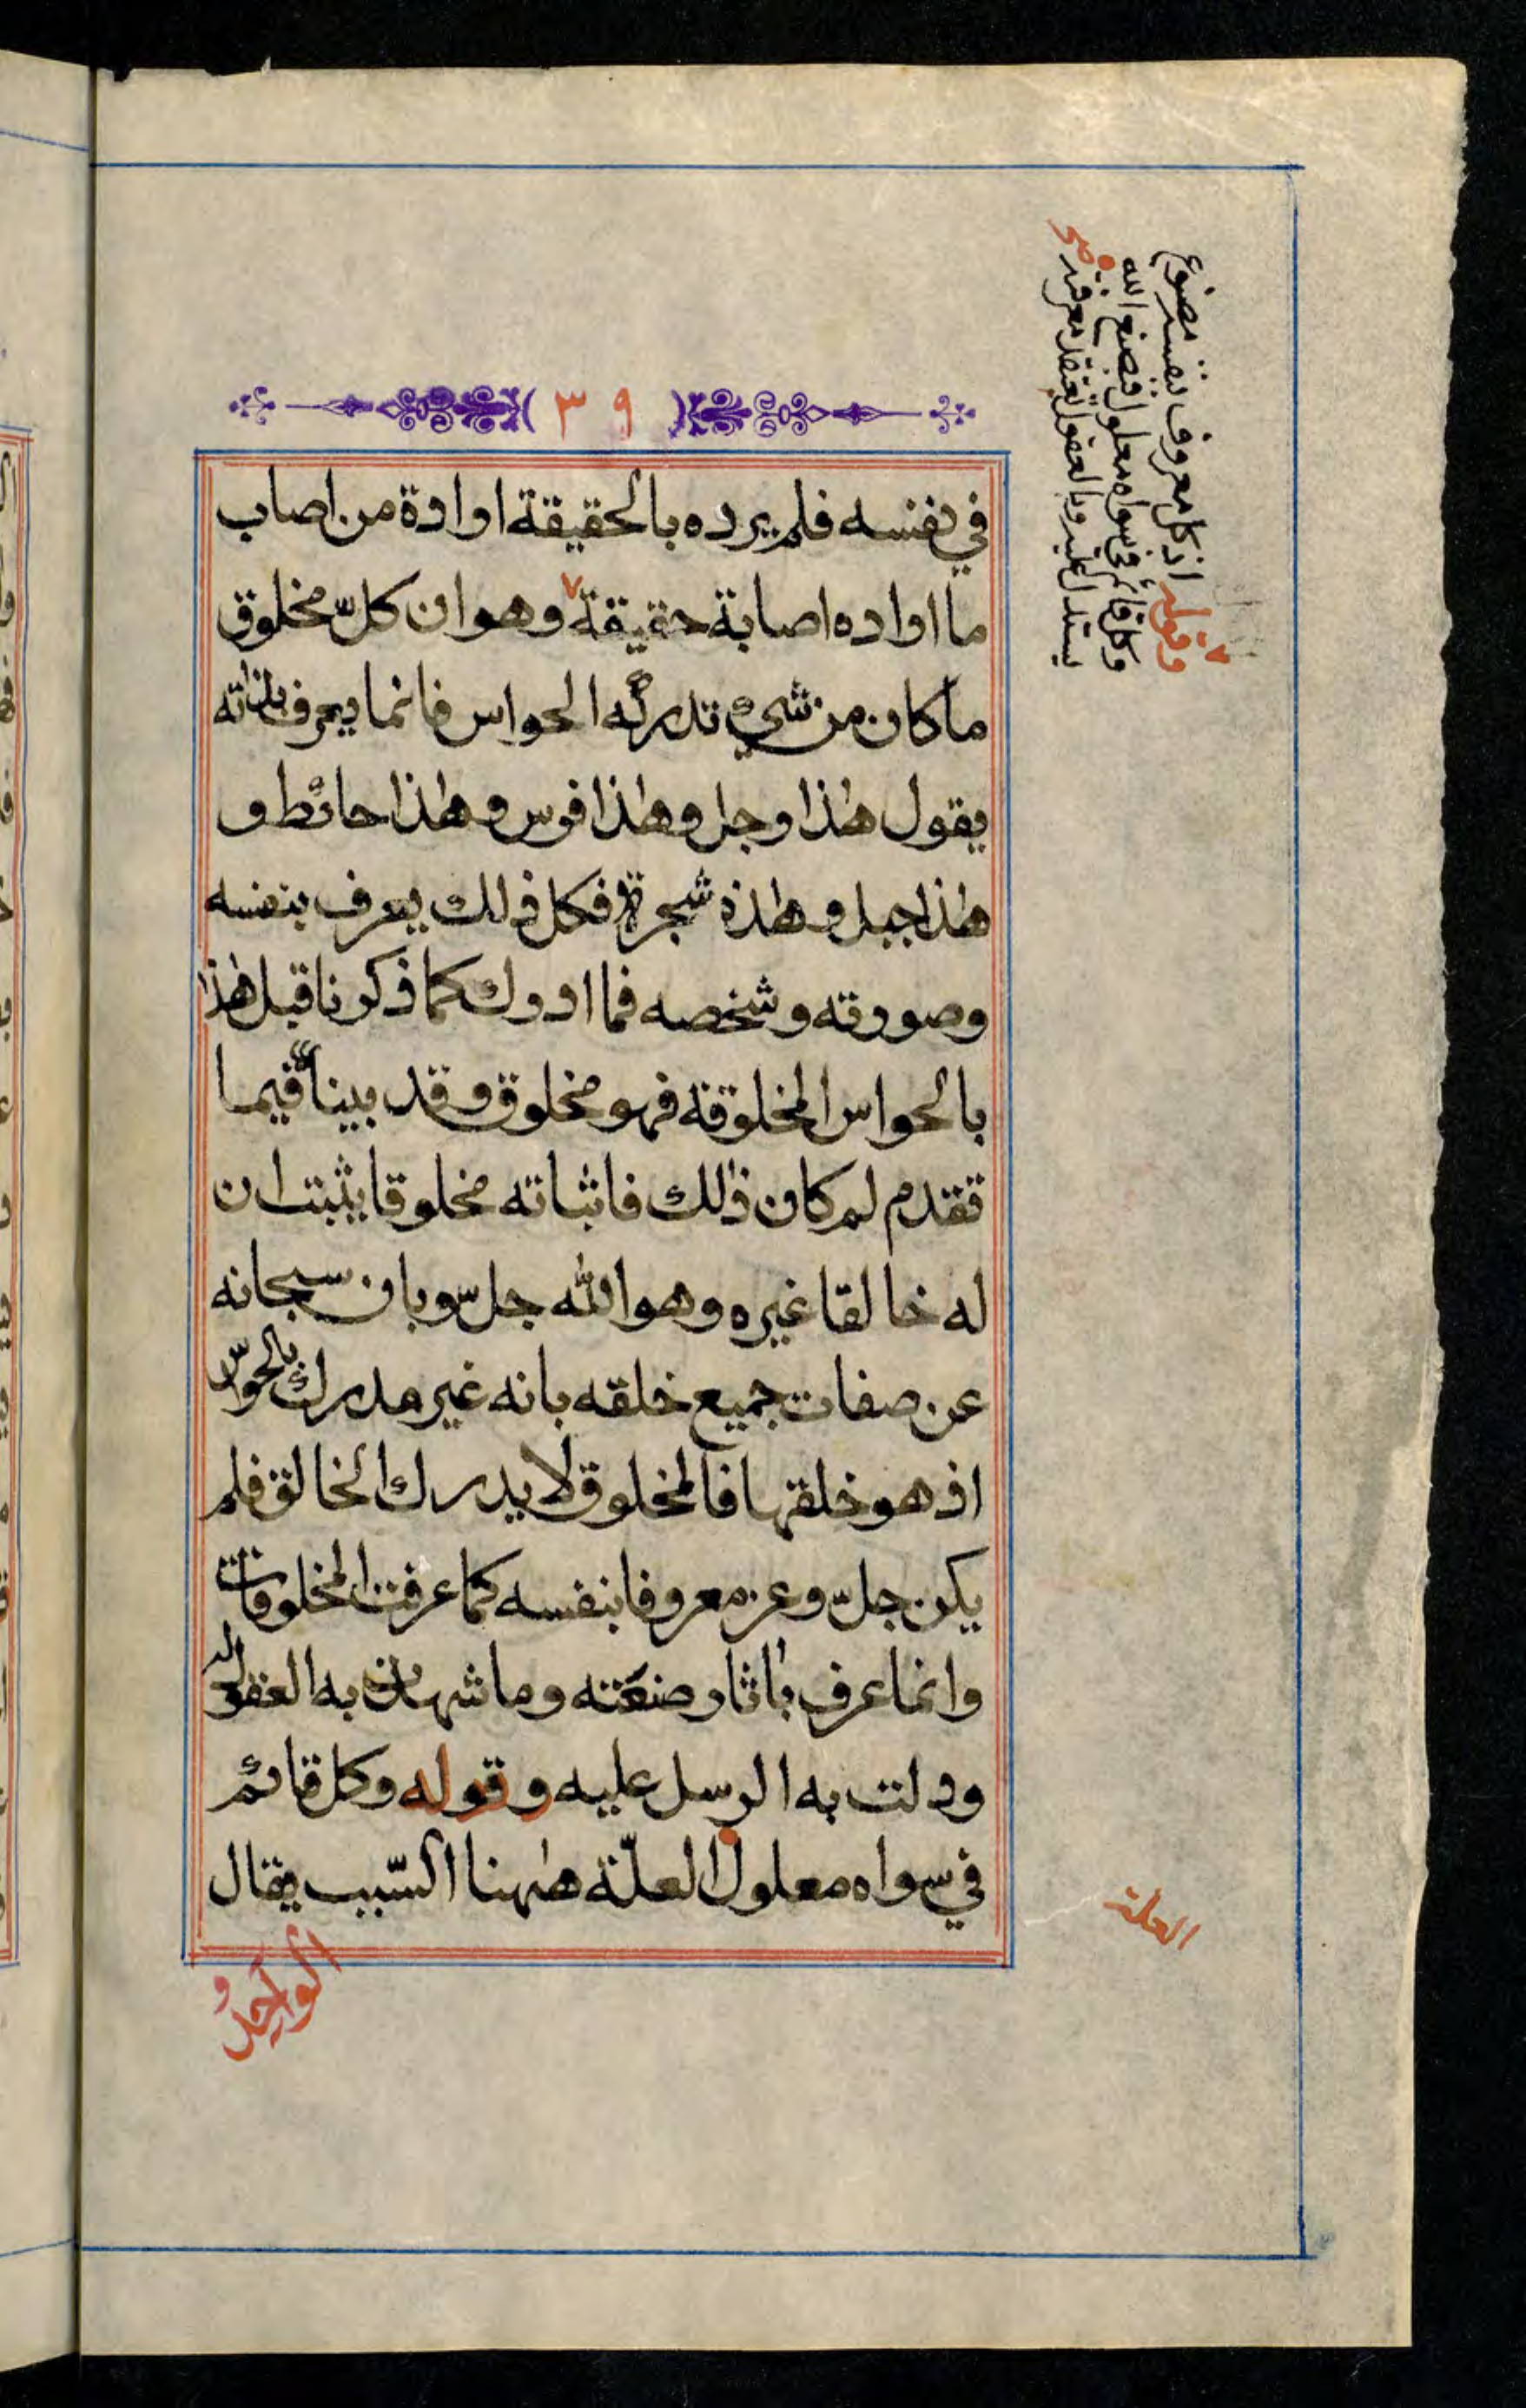 ٣٩
في نفسه فلم يرده بالحقيقة ارادة من اصاب
ما اراده اصابة حقيقة وهو ان كلّ مخلوق
ما كان من شيء تدركه الحواس فانما يعرف بذاته
يقول هٰذا رجل وهٰذا فرس وهٰذا حائط و
هٰذا جبل وهٰذه شجرة فكل ذلك يعرف بنفسه
وصورته وشخصه فما ادرك كما ذكرنا قبل هٰذا
بالحواس المخلوقة فهو مخلوق وقد بينا فيما
تقدم لم كان ذٰلك فاثباته مخلوقا يثبت ان
له خالقا غيره وهو الله جلّ وبان سبحانه
عن صفات جميع خلقه بانه غير مدرك بالحواسّ
اذ هو خلقها فالمخلوق لا يدرك الخالق فلم
يكن جلّ وعز معروفا بنفسه كما عرفت المخلوقات
وانما عرف باٰثار صنعته وما شهدت به العقول له
ودلت به الرسل عليه وقوله وكل قائم
في سواه معلول العلّة هٰهنا السّبب يقال
وقوله اذ كل معروف بنفسه مصنوع
وكل قائم في سواه معلول فبصنع الله
يستدل عليه وبالعقول تعتقد معرفته
العلة
الواحد